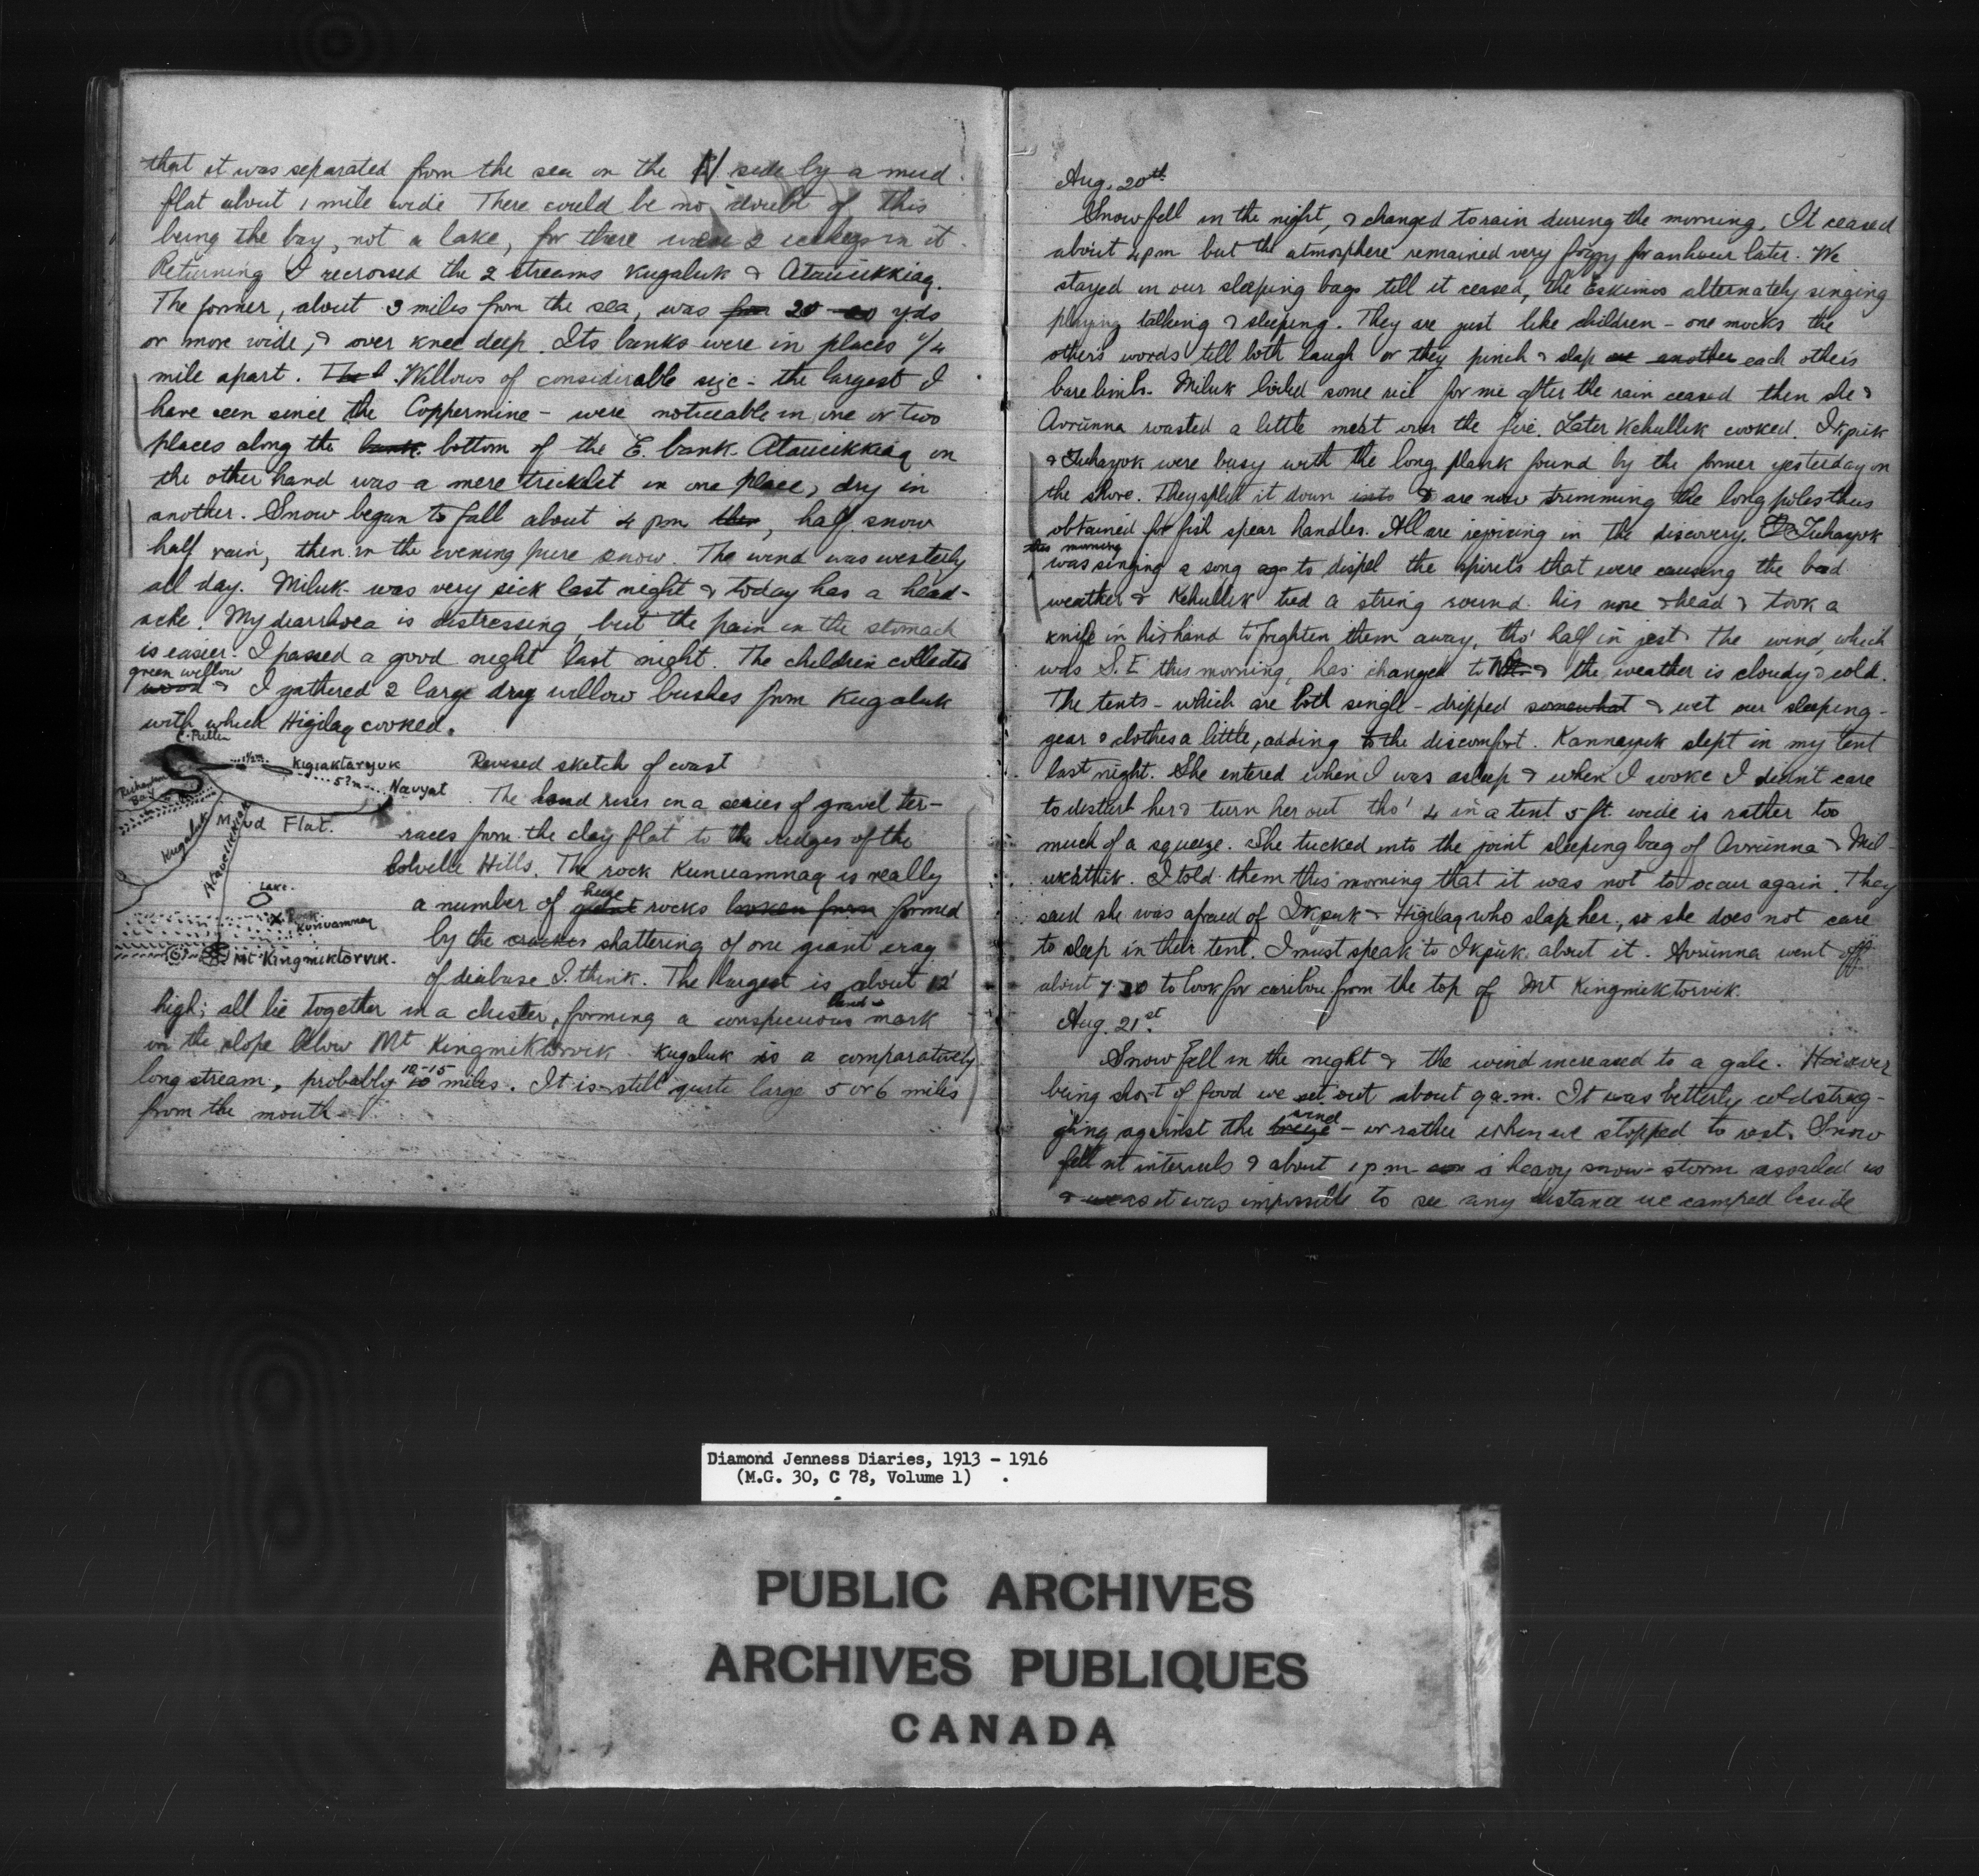 that it was separated from the sea on the N side by a mud
flat about 1 mile wide There could be no doubt of this
being the bay, not a lake, for there were 2 icebergs in it.
Returning I recrossed the 2 streams Kugaluk & Atauukkiaq.
The former, about 3 miles from the sea, was 20 yds
or more wide, & over knee deep. Its banks were in places 1/4
mile apart. Willows of considerable size - the largest I
have seen since the Coppermine - were noticeable in one or two
places along the bank bottom of the E. bank. Atauukkiaq on
the other hand was a mere tricklet in one place, dry in
another. Snow began to fall about 4 pm then, half snow
half rain, then in the evening pure snow. The wind was westerly
all day. Miluk was very sick last night & today has a head-
ache. My diarrhoea is distressing, but the pain in the stomach
is easier. I passed a good night last night. The children collected
green willow
wood & I gathered 2 large dry willow bushes from Kugaluk
with which Higilaq cooked.
C. Pullen
Kigiaktaryuk
Revised sketch of coast
Richardson Bay
5?m
Nauyat
The land rises in a series of gravel ter-
Mud Flat.
races from the clay flat to the ridges of the
Kugaluk
Colville Hills. The rock Kunuamnaq is really
Lake.
huge
a number of giant rocks broken from formed
Rock Kunuamnaq
by the cracks shattering of one giant crag
Mt Kingmiktorvik.
of diabase I think. The largest is about 12'
land-
high; all lie together in a cluster, forming a conspicuous mark
on the slope below Mt Kingmiktorvik. Kugaluk is a comparatively
10-15
long stream, probably 10 miles. It is still quite large 5 or 6 miles
from the mouth.
Aug. 20th
Snow fell in the night, & changed to rain during the morning. It ceased
about 4 pm but the atmosphere remained very foggy for an hour later. We
stayed in our sleeping bags till it ceased, the Eskimos alternately singing
playing talking & sleeping. They are just like children - one mocks the
others words till both laugh or they pinch & slap one another each others
bare limbs. Miluk boiled some for me after the rain ceased then she &
Avrunna roasted a little meat over the fire. Later Kehullik cooked. Ikpuk
& Tuhayok were busy with the long plank found by the former yesterday on
the shore. They split it down into & are now trimming the long poles thus
obtained for fish spear handles. All are rejoicing in the discovery. Tuhayok
this morning
was singing a song ago to dispel the spirits that were causing the bad
weather & Kehullik tied a string round his nose & head & took a
knife in his hand to frighten them away, tho' half in jest. The wind, which
was S.E this morning, has changed to & the weather is cloudy & cold.
The tents - which are both single - dripped somewhat & wet our sleeping-
gear & clothes a little, adding to the discomfort. Kannayuk slept in my tent
last night. She entered when I was asleep & when I woke I didn't care
to disturb her & turn her out tho' 4 in a tent 5 ft. wide is rather too
much of a squeeze. She tucked into the joint sleeping bag of Avrunna & Mil-
ukattuk. I told them this morning that it was not to occur again. They
said she was afraid of Ikpuk & Higilaq who slap her, so she does not care
to sleep in their tent. I must speak to Ikpuk about it. Avrunna went off
about 7.30 to look for caribou from the top of Mt Kingmiktorvik.
Aug. 21st.
Snow fell in the night & the wind increased to a gale. However
being short of food we set out about 9 a.m. It was bitterly cold strug-
wind
gling against the breeze - or rather when we stopped to rest. Snow
fell at intervals & about 1 pm a heavy snow-storm assailed us
& as it was impossible to see any distance we camped beside
Diamond Jenness Diaries, 1913 - 1916
(M.G. 30, C 78, Volume 1)
PUBLIC ARCHIVES
ARCHIVES PUBLIQUES
CANADA